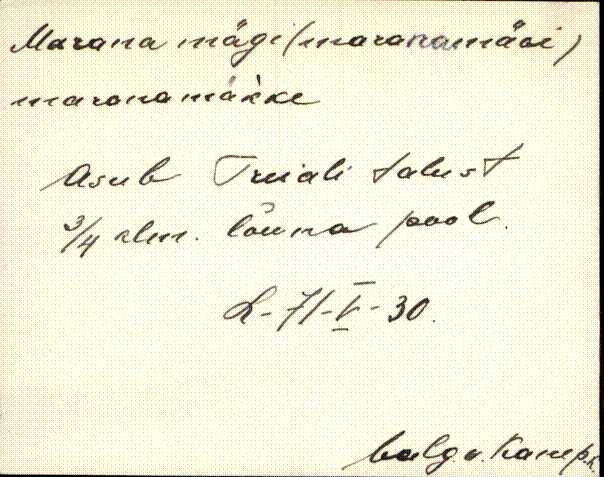 Marana mägi (maranamäGi)
maranamäkke
Asub Truiali talust
3/4 klm. lõuna pool.
L-71-V-30.
Valg. v. Kanep. k.